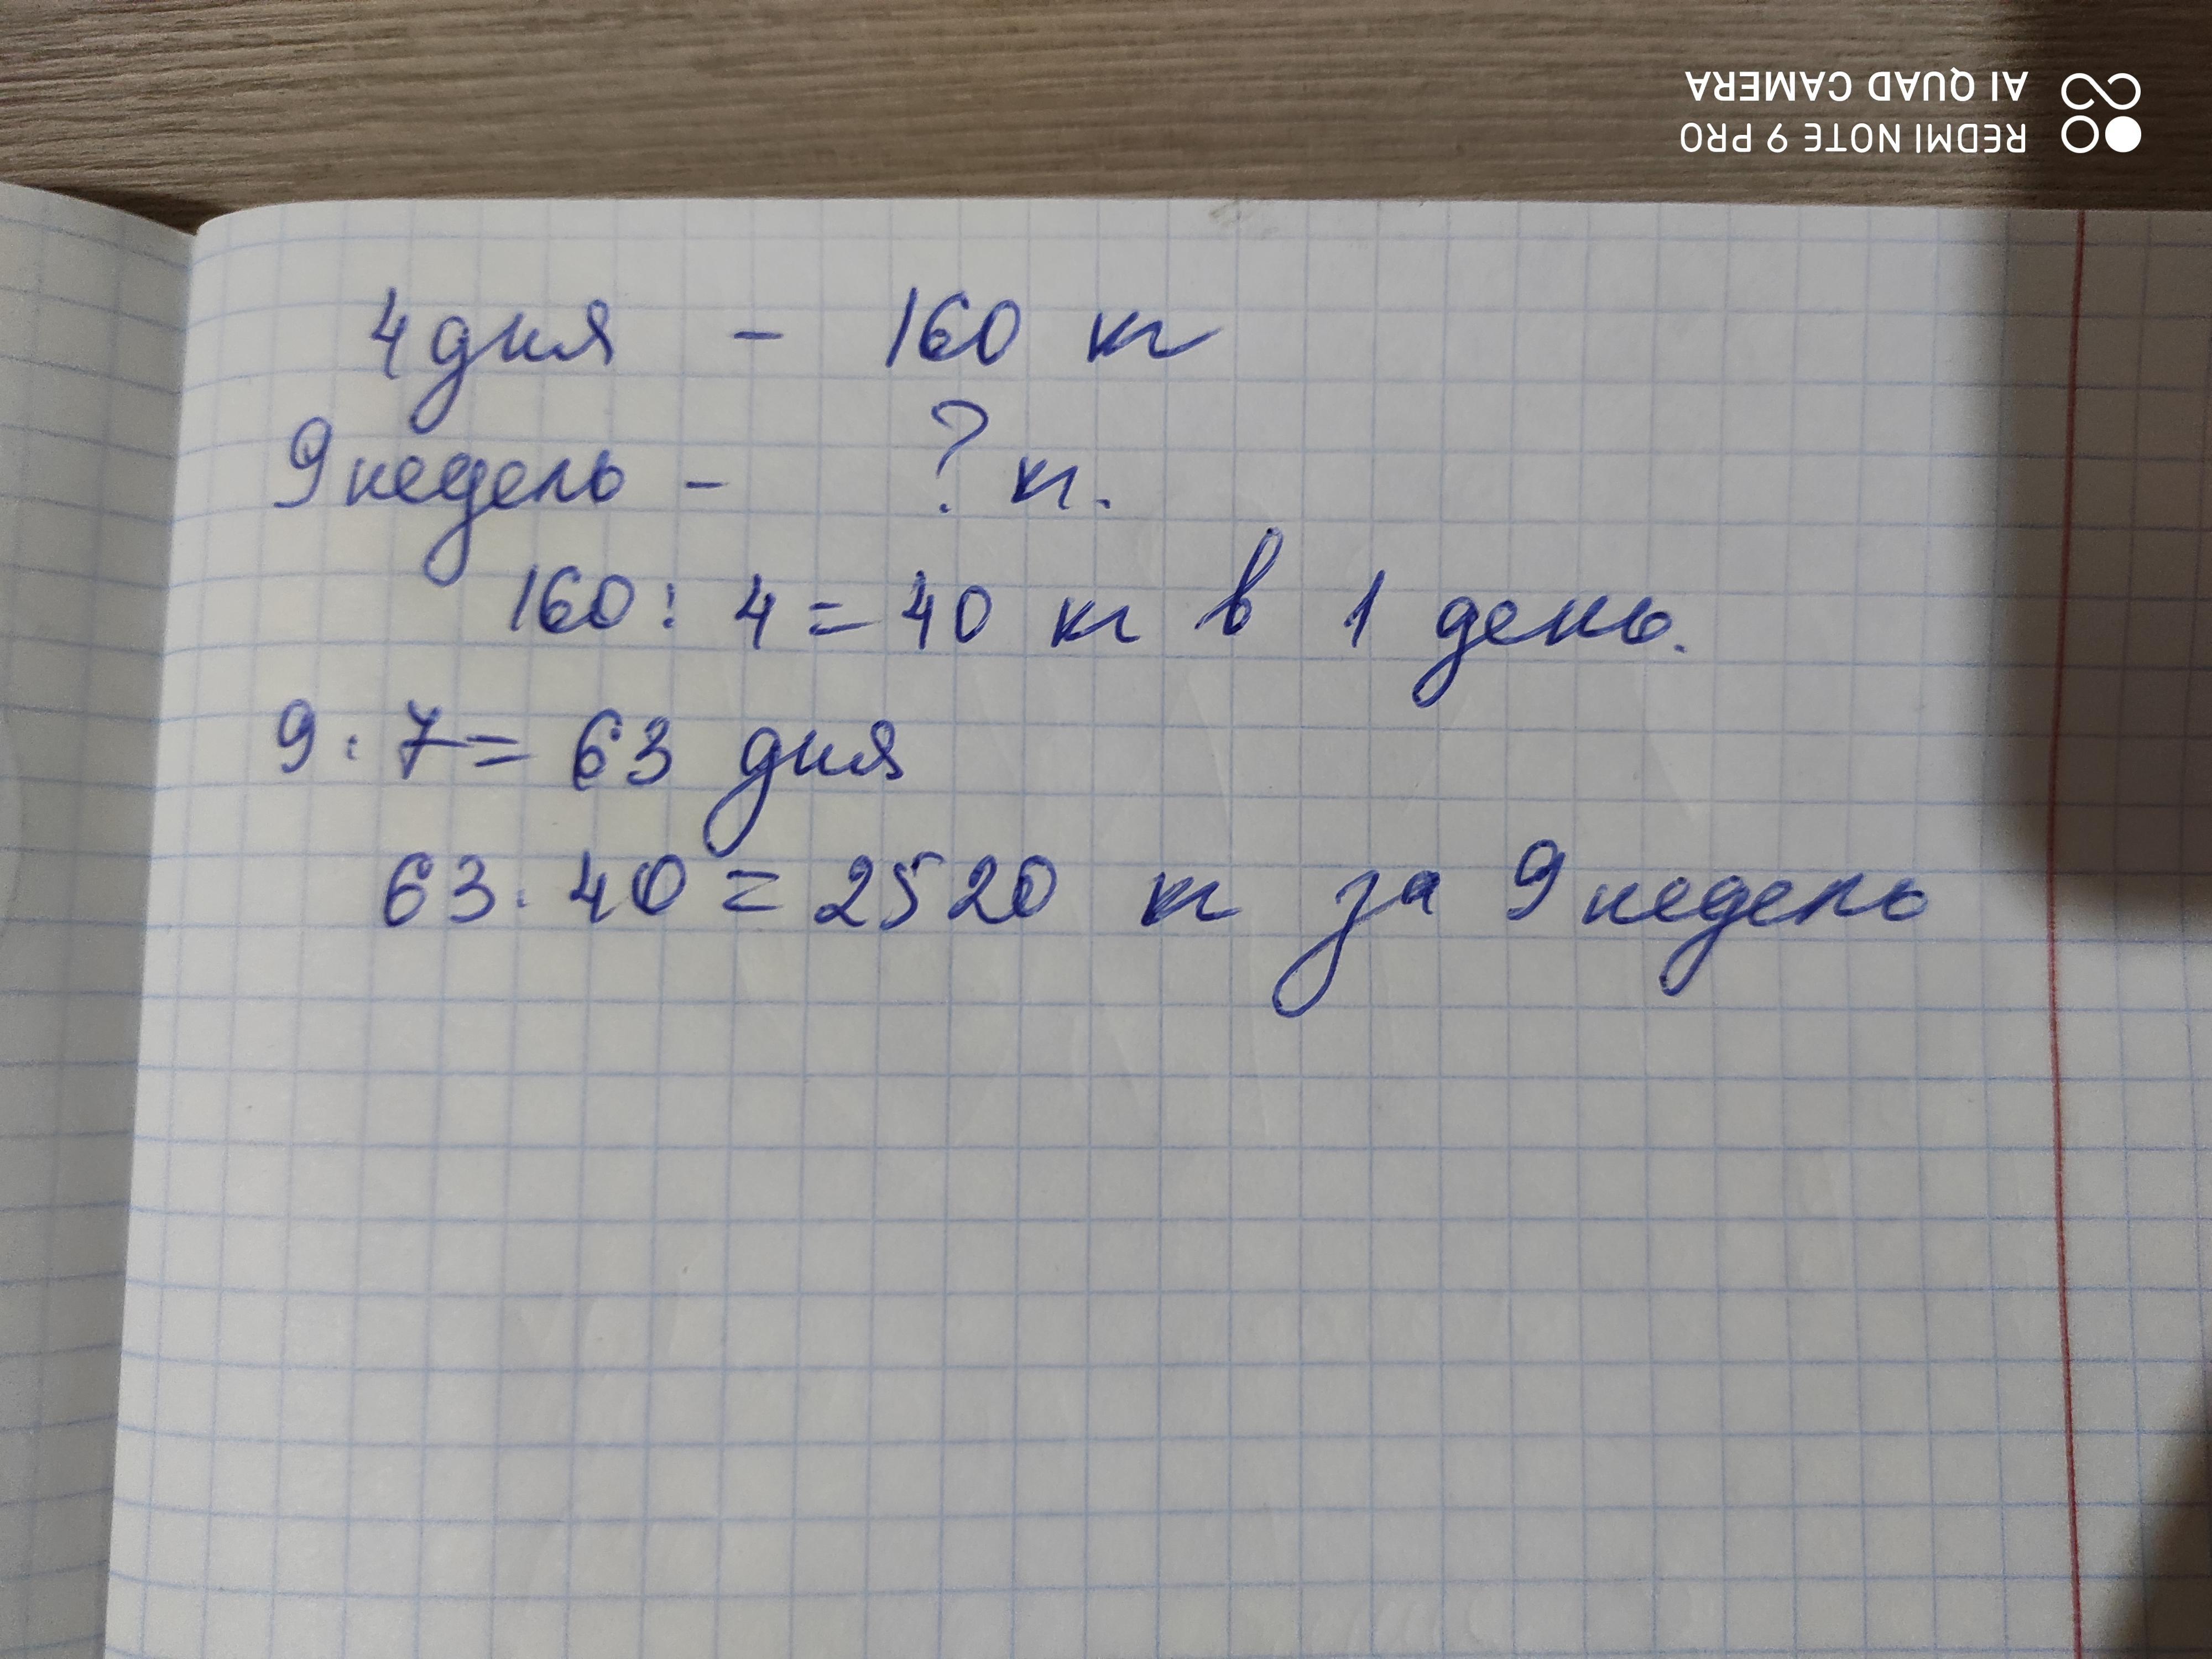 REDMI NOTE 9 PRO
AI QUAD CAMERA
4 дня - 160 кг
9 недель - ? кг.
160 : 4 = 40 кг в 1 день.
9 : 7 = 63 дня
63 . 40 = 2520 кг за 9 недель